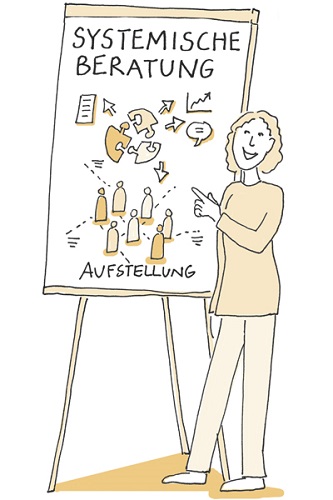 SYSTEMISCHE
BERATUNG
AUFSTELLUNG